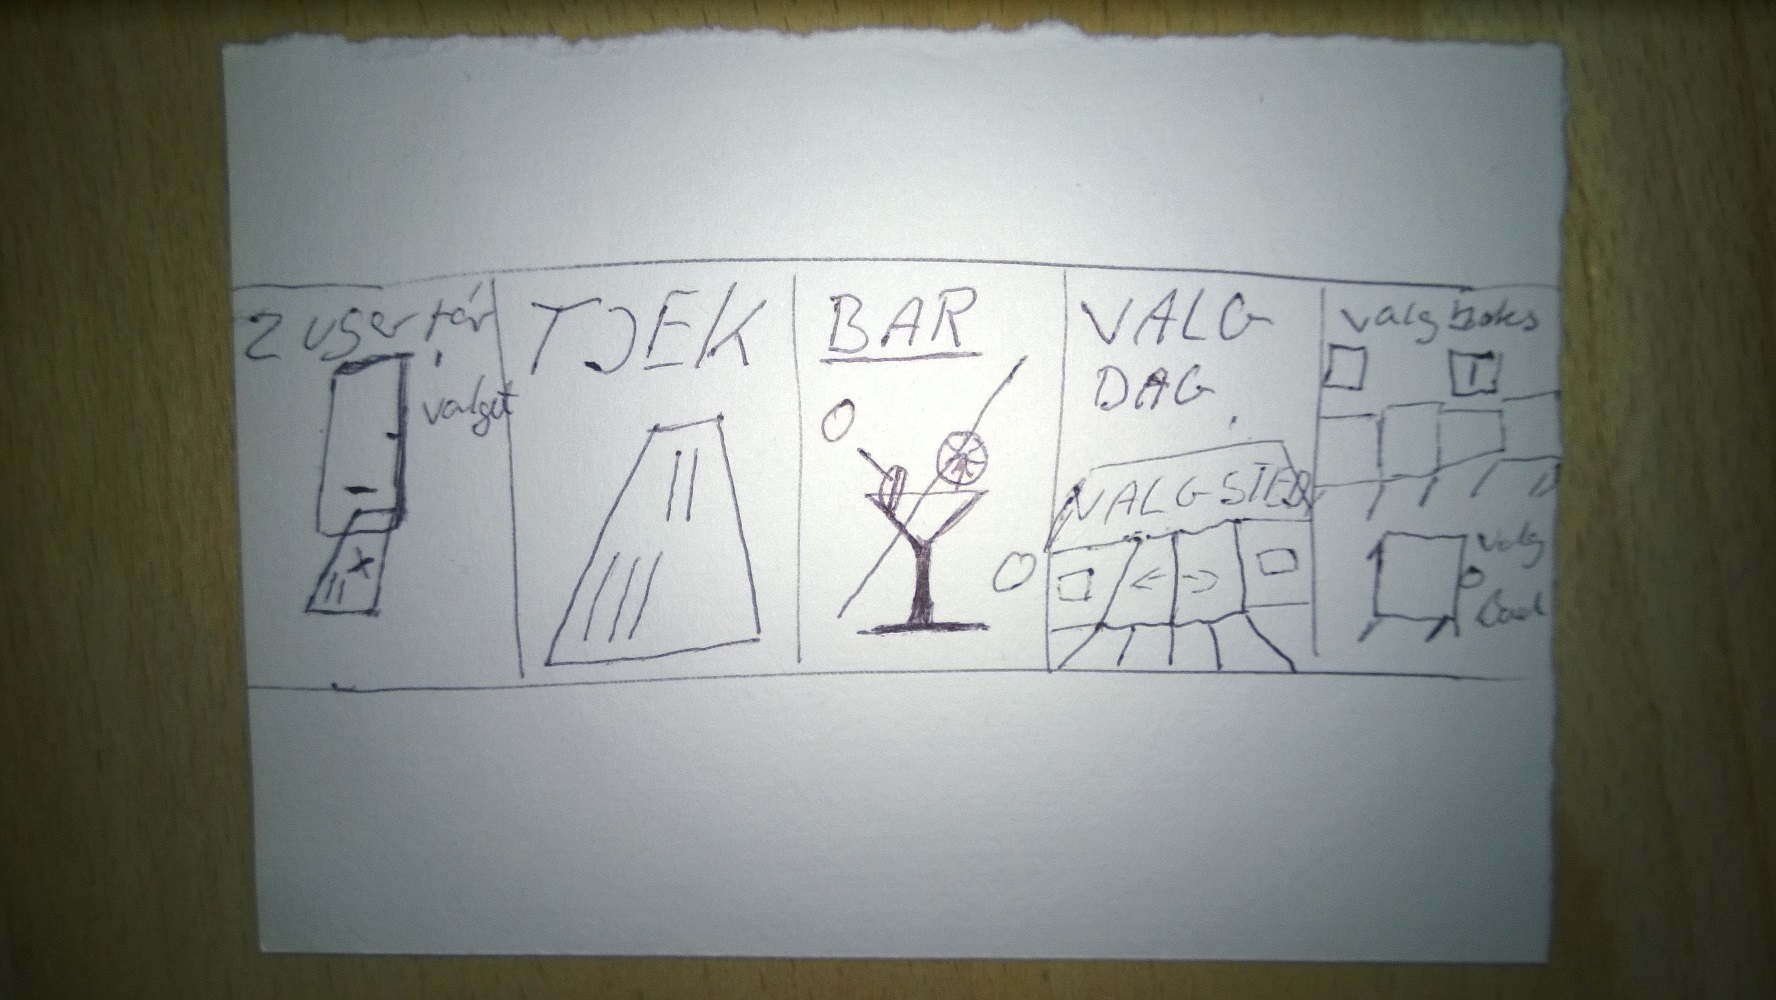 2 uger før
valget
TJEK
BAR
VALG
DAG.
VALGSTED
valgboks
valg